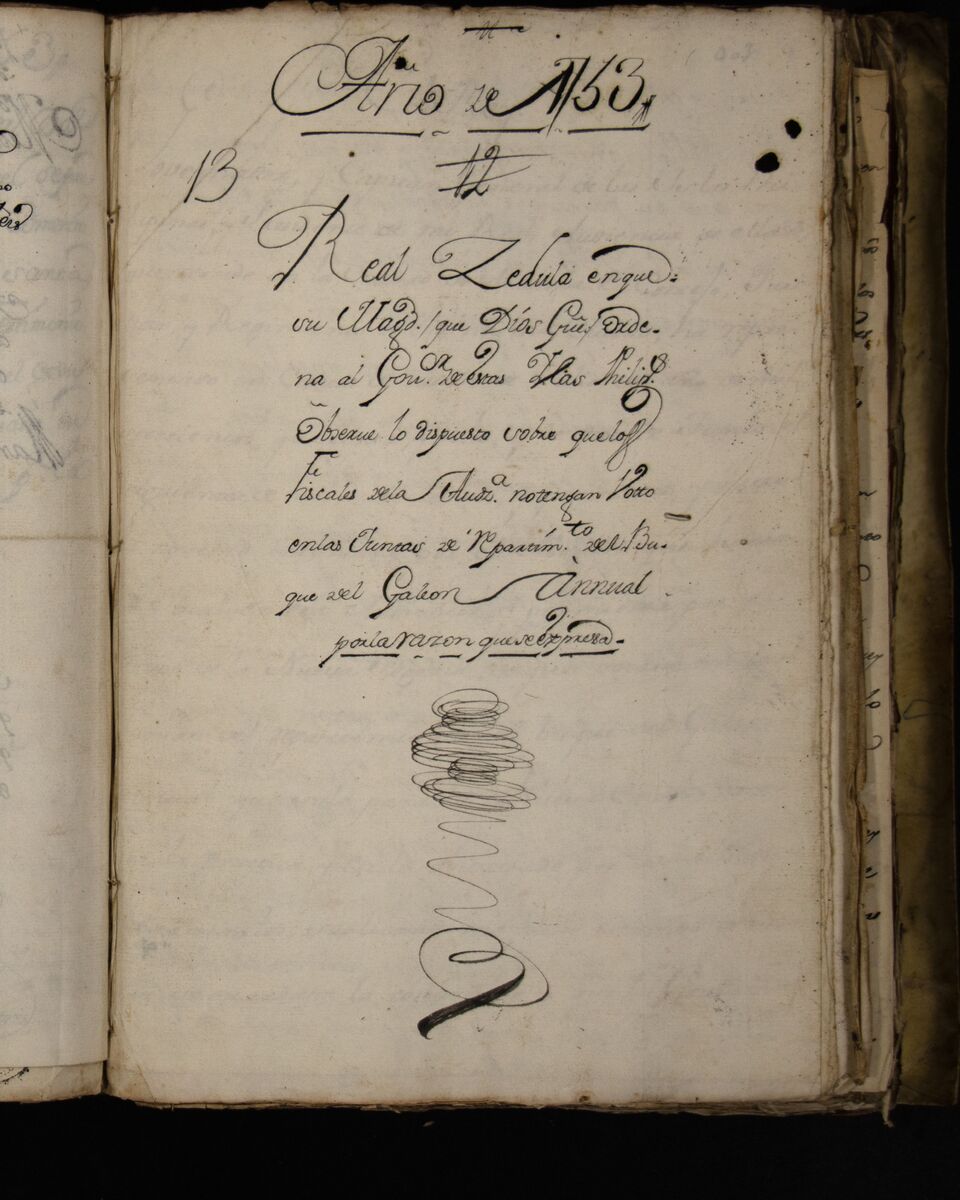 Año de 1753
13
12
Real Zedula enque
su Magd. / que Dios Gue / orde-
na al Gour. de estas Yslas Philips
Observe lo dispuesto sobre que los
fiscales dela Audª. notengan Votto
enlas Juntas de Repartimto. del Bu-
que del Galeon Annual
porla razon que se expresa-